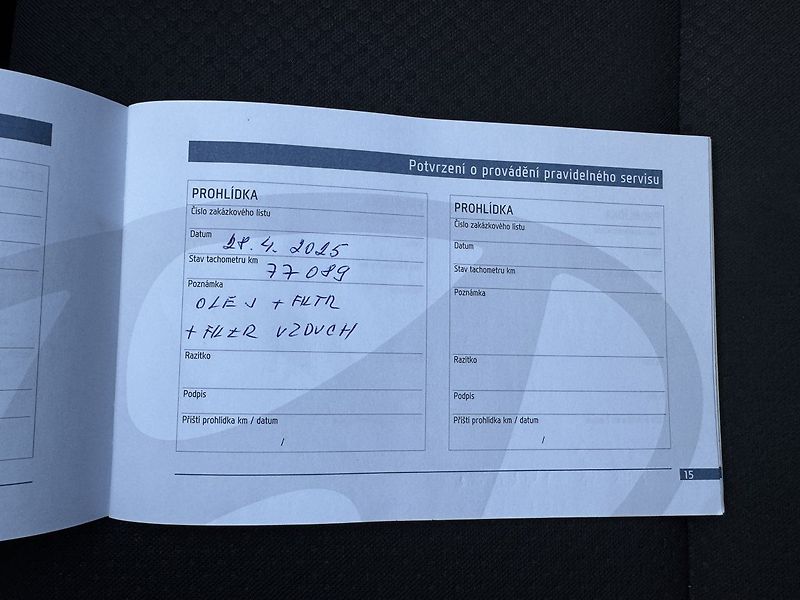 Potvrzení o provádění pravidelného servisu
PROHLÍDKA
Číslo zakázkového listu
Datum 28. 4. 2025
Stav tachometru km 77089
Poznámka
OLEJ + FILTR
+ FILTR VZDUCH
Razítko
Podpis
Příští prohlídka km / datum
/
PROHLÍDKA
Číslo zakázkového listu
Datum
Stav tachometru km
Poznámka
Razítko
Podpis
Příští prohlídka km / datum
/
15